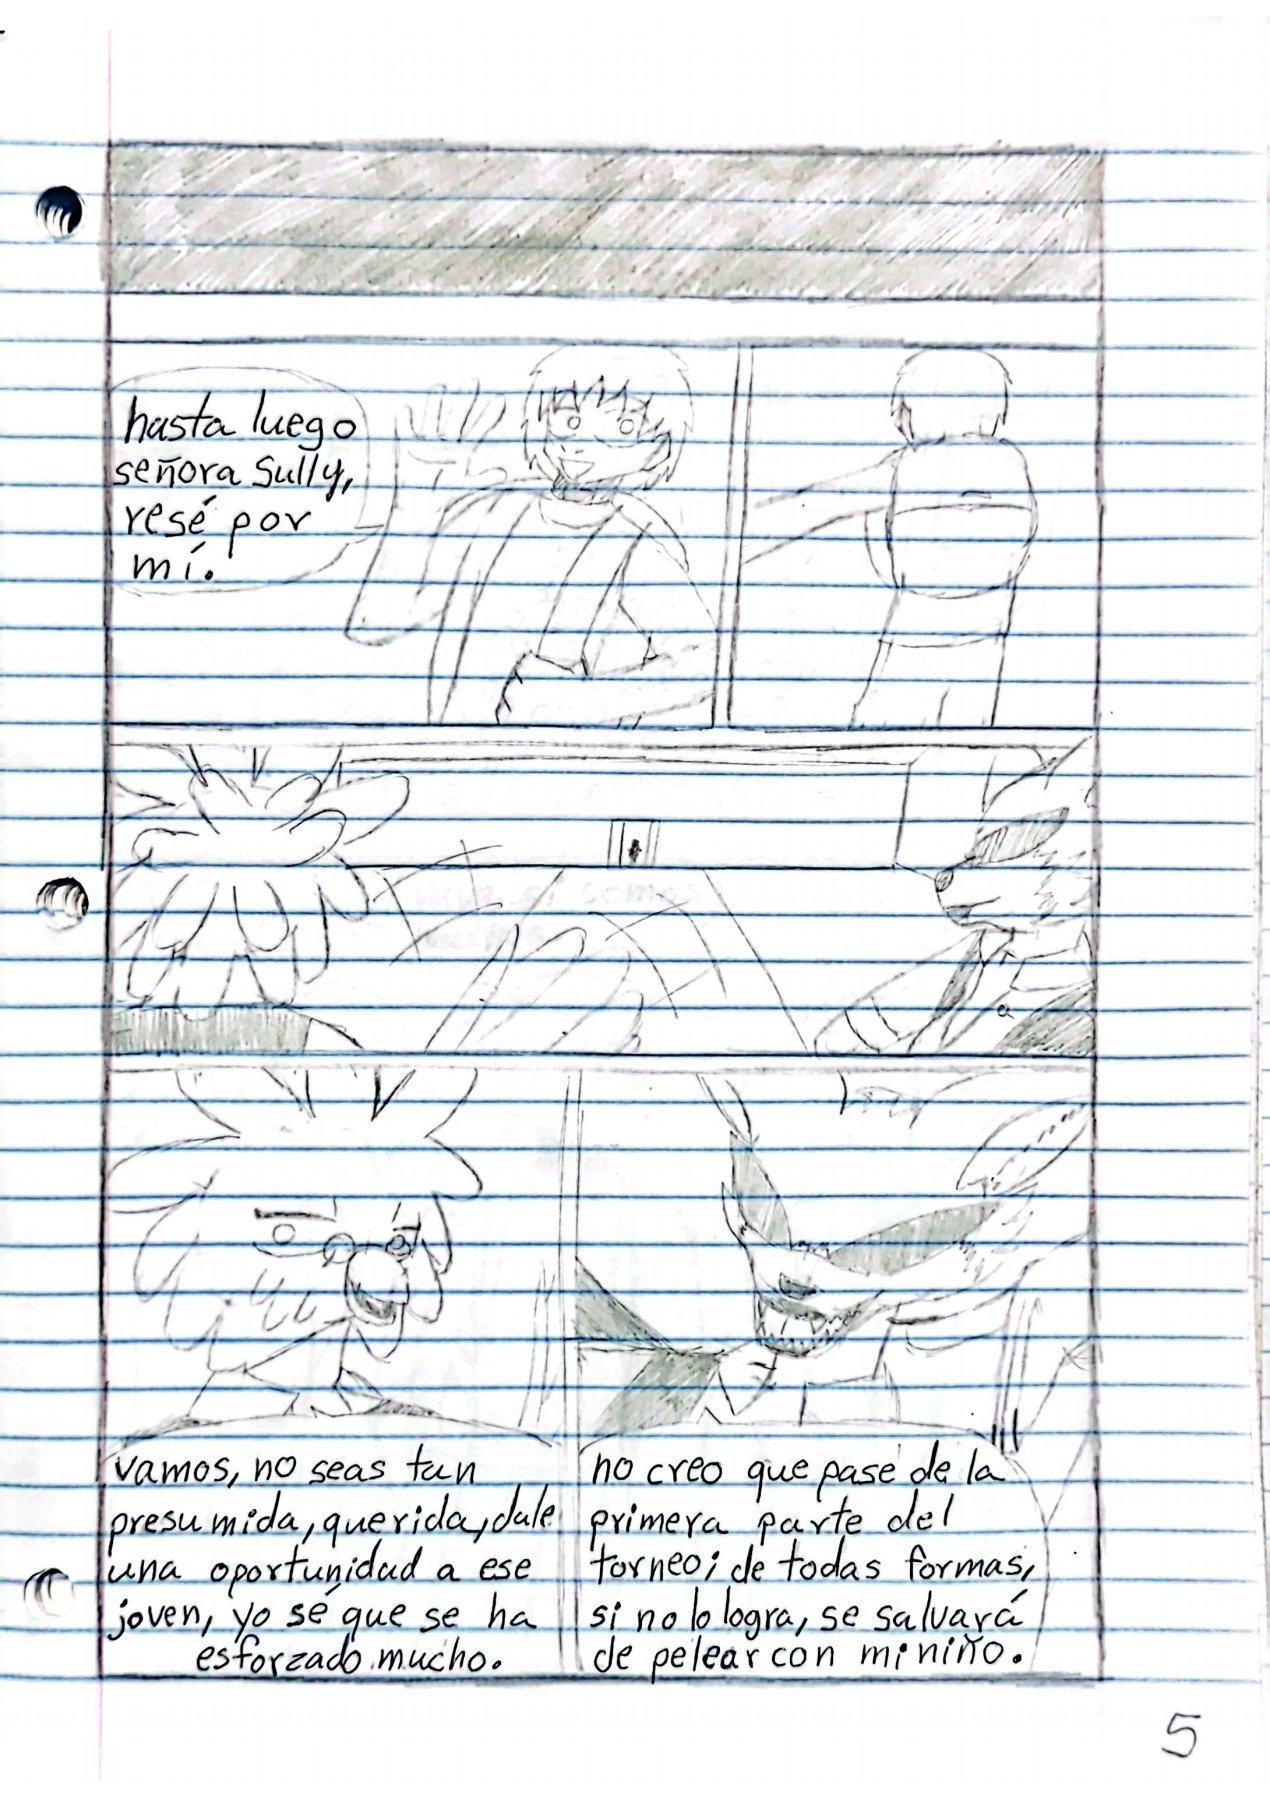 hasta luego
señora Sully,
resé por
mí.
vamos, no seas tan
presumida, querida, dale
una oportunidad a ese
joven, yo sé que se ha
esforzado mucho.
no creo que pase de la
primera parte del
torneo; de todas formas,
si no lo logra, se salvará
de pelear con mi niño.
5